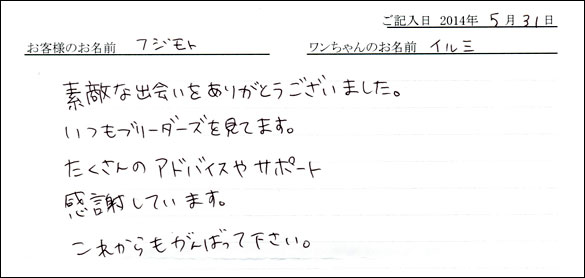 ご記入日 2014年 5月 31日
お客様のお名前 フジモト ワンちゃんのお名前 イルミ
素敵な出会いをありがとうございました。
いつもブリーダーズを見てます。
たくさんのアドバイスやサポート
感謝しています。
これからもがんばって下さい。